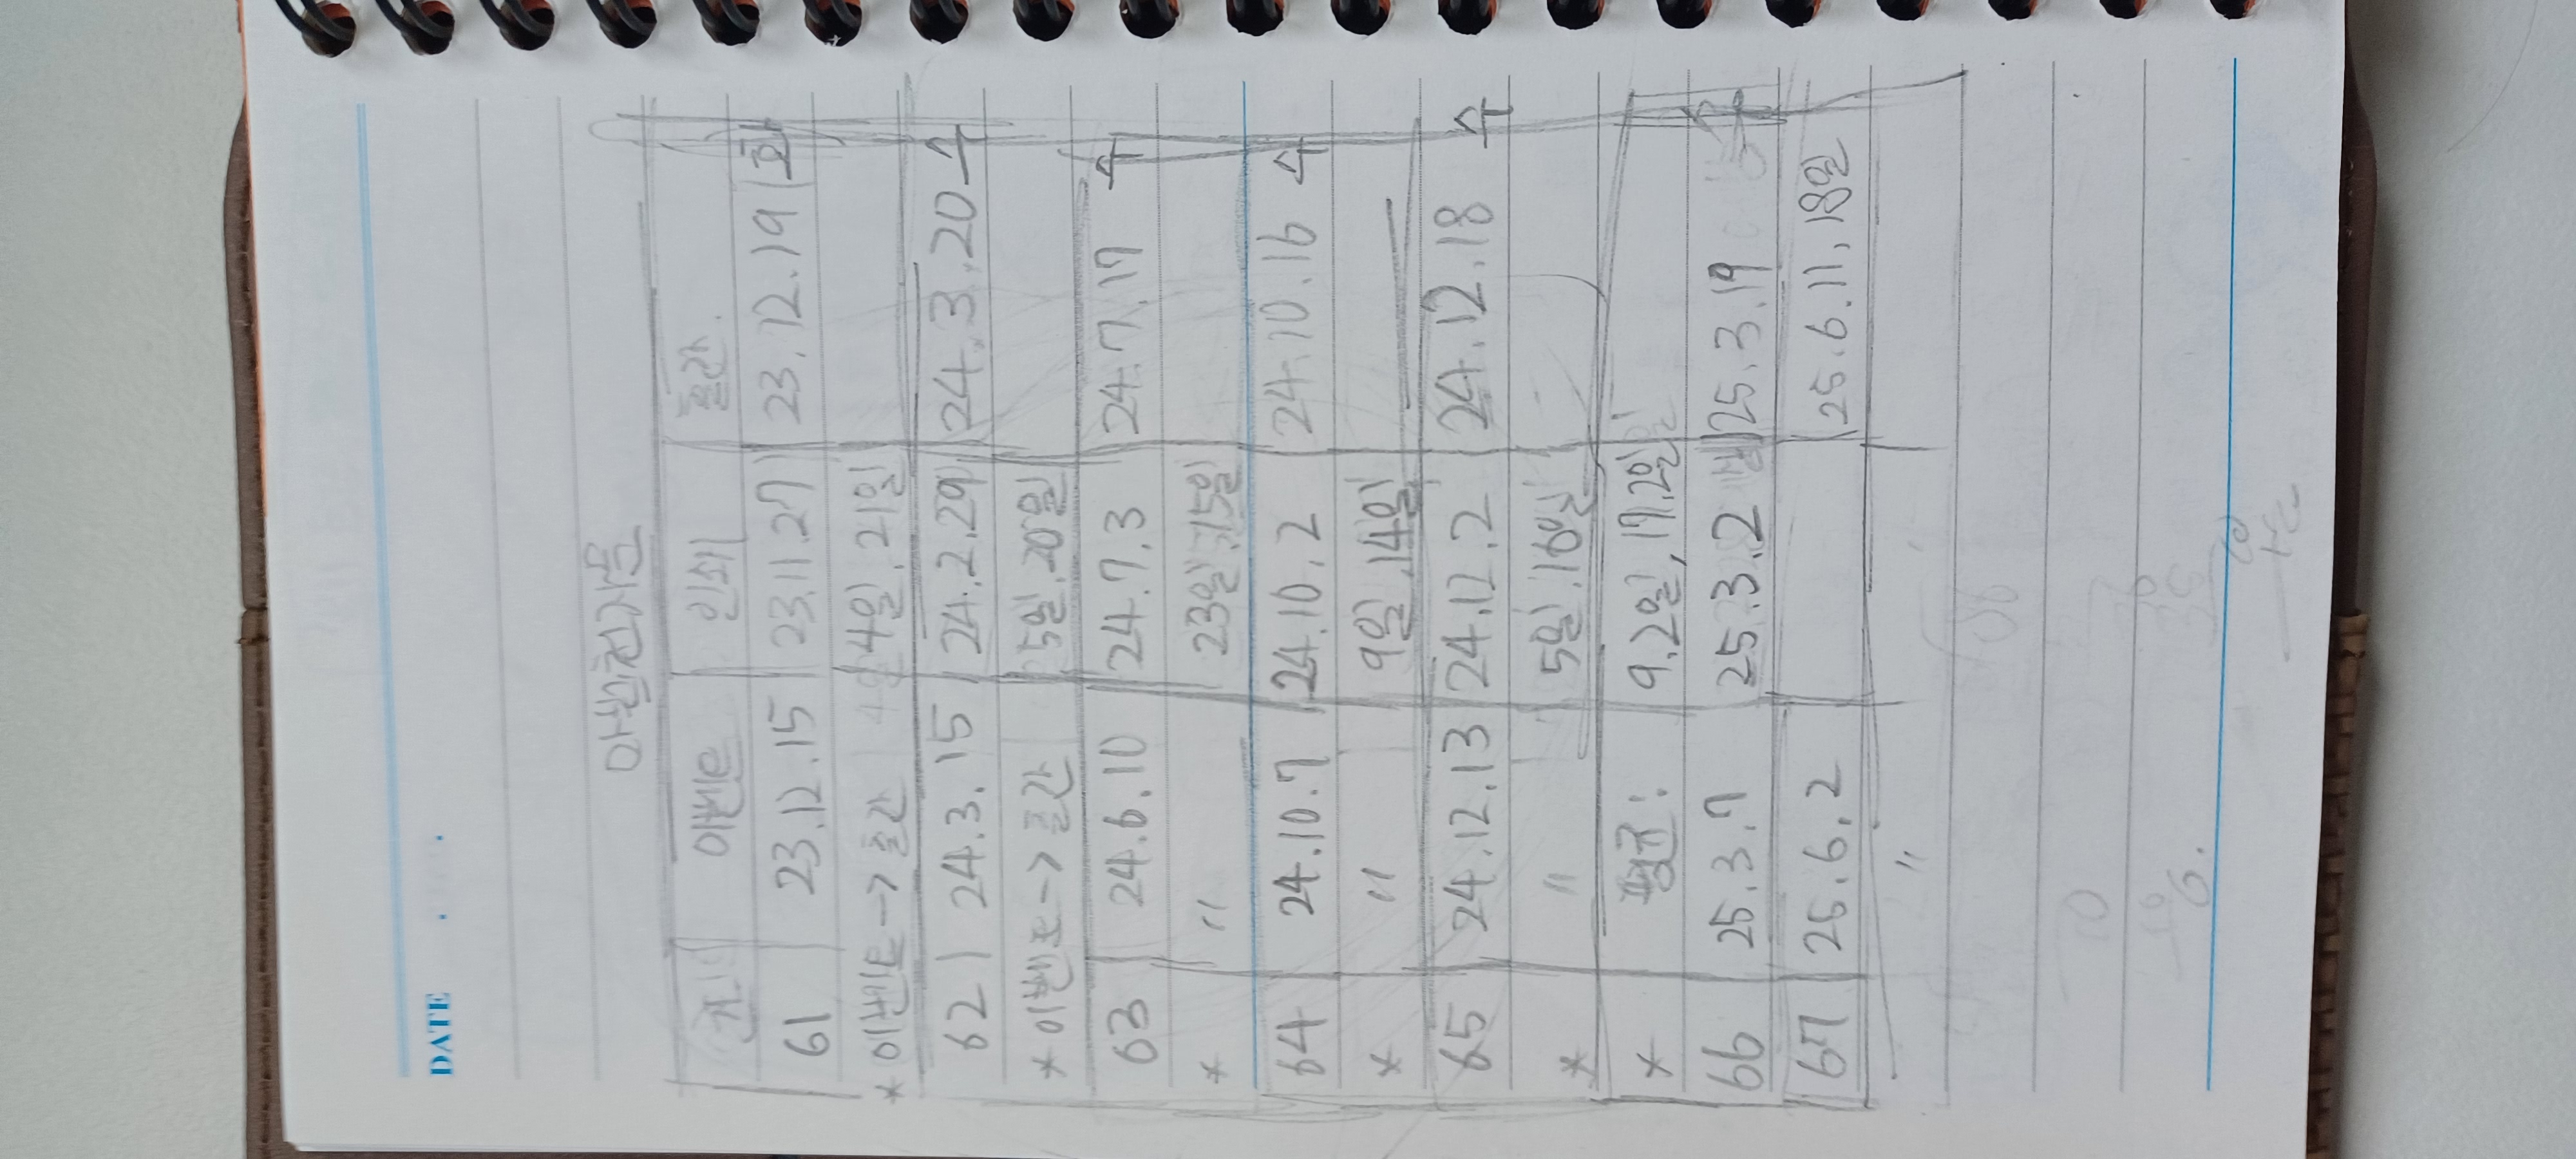 DATE
아침천사들
권 이벤트 인쇄 출간
61 23.12.15 23.11.27 23.12.19 화
* 이벤트 -> 출간 4일, 21일
62 24.3.15 24.2.29 24.3.20 수
* 이벤트 -> 출간 5일, 20일
63 24.6.10 24.7.3 24.7.17 수
* " 23일, 15일
64 24.10.7 24.10.2 24.10.16 수
* " 9일, 14일
65 24.12.13 24.12.2 24.12.18 수
* " 5일, 16일
* 평균: 9.2일, 17.2일
66 25.3.7 25.3.2 25.3.19 수
67 25.6.2 25.6.11, 18일
"